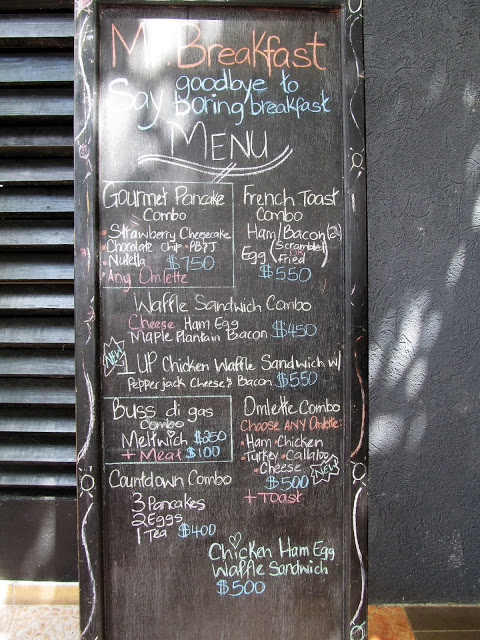 Mr. Breakfast
Say goodbye to
boring breakfast
MENU
Gourmet Pancake
Combo
• Strawberry Cheesecake
• Chocolate Chip • PB & J
• Nutella $750
• Any Omlette
French Toast
Combo
Ham/Bacon (2)
Egg (Scrambled
Fried)
$550
Waffle Sandwich Combo
Cheese Ham Egg
Maple Plantain Bacon $450
NEW
1 UP Chicken Waffle Sandwich w/
Pepperjack Cheese & Bacon $550
Buss di gas
Combo
Meltwich $250
+ Meat $100
Omlette Combo
Choose ANY Omlette:
• Ham • Chicken
• Turkey • Callaloo
• Cheese NEW
$500
+ Toast
Countdown Combo
3 Pancakes
2 Eggs
1 Tea $400
Chicken Ham Egg
Waffle Sandwich
$500